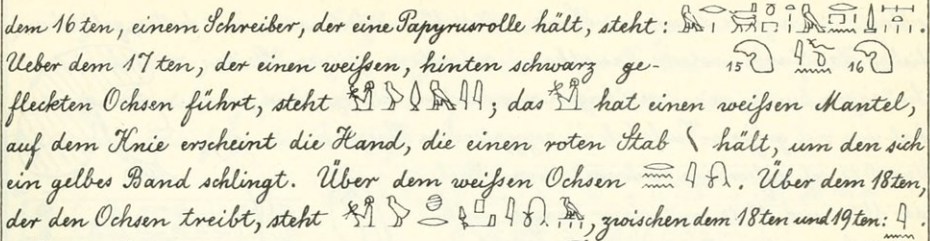 dem 16ten, einem Schreiber, der eine Papyrusrolle hält, steht: .
Ueber dem 17ten, der einen weißen, hinten schwarz ge- 15 16
fleckten Ochsen führt, steht ; das hat einen weißen Mantel,
auf dem Knie erscheint die Hand, die einen roten Stab hält, um den sich
ein gelbes Band schlingt. Über dem weißen Ochsen . Über dem 18ten,
der den Ochsen treibt, steht , zwischen dem 18ten und 19ten: .